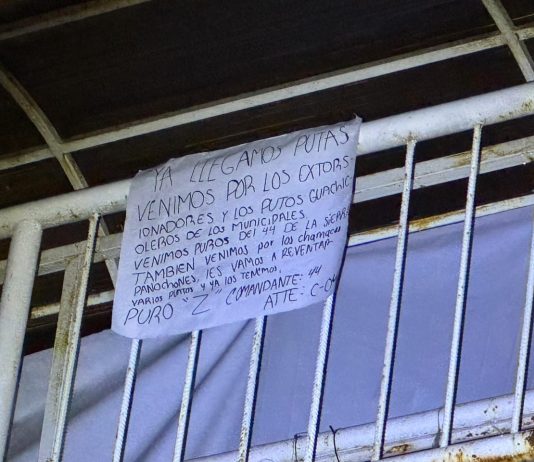 YA LLEGAMOS PUTAS
VENIMOS POR LOS EXTORS-
IONADORES Y LOS PUTOS GUACHIC
OLEROS DE LOS MUNICIPALES
VENIMOS PUROS DEL 44 DE LA SIERRA
TAMBIEN VENIMOS POR los chamacos
PANOCHONES, lES VAMOS A REVENTAR
VARIOS PUNTOS Y YA lOS TENEMOS.
PURO "Z" COMANDANTE: 44
ATTE: C-04